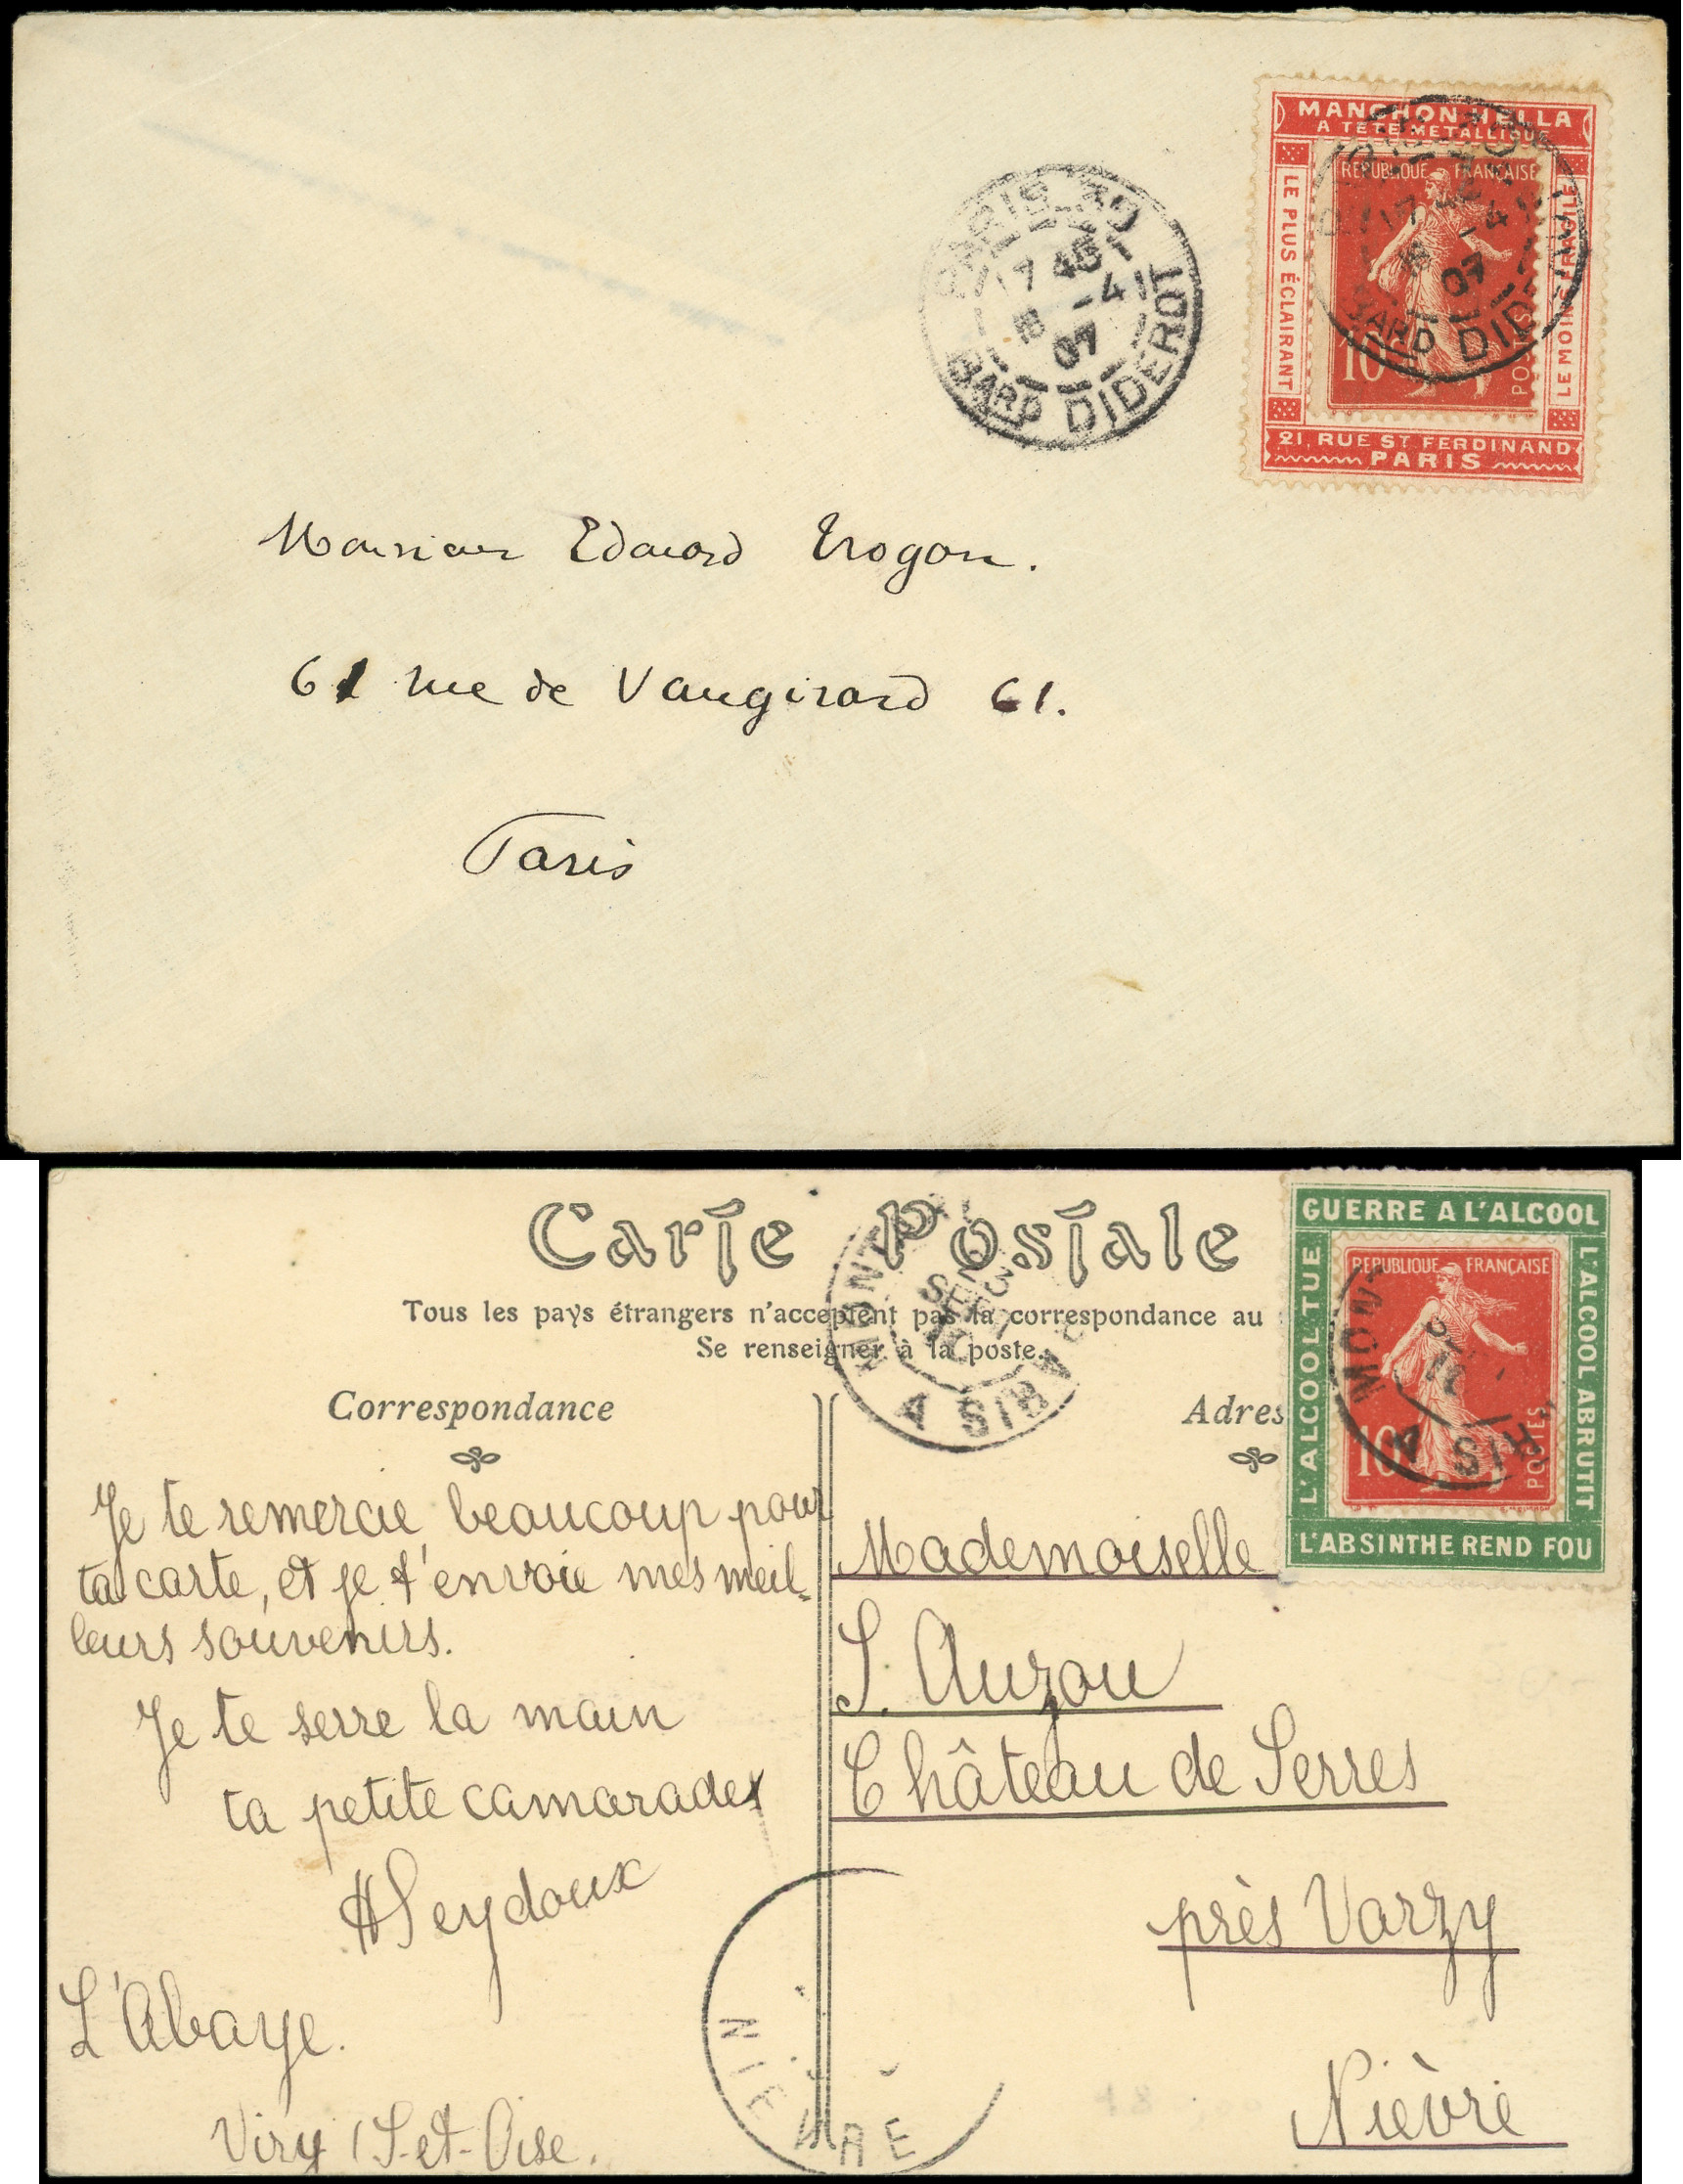 MANCHON HELLA
A TÊTE MÉTALLIQUE
LE PLUS ÉCLAIRANT
REPUBLIQUE FRANÇAISE
10
POSTES
LE MOINS FRAGILE
21, RUE ST FERDINAND
PARIS
PARIS_30
17 45
18 -4
07
BARD DIDEROT
17 45
18 -4
07
BARD DIDE
Monsieur Edouard Trogon.
61 rue de Vaugirard 61.
Paris
Carte Postale
Tous les pays étrangers n'acceptent pas la correspondance au
Se renseigner à la poste.
Correspondance
Adres
GUERRE A L'ALCOOL
L'ALCOOL TUE
L'ALCOOL ABRUTIT
L'ABSINTHE REND FOU
REPUBLIQUE FRANÇAISE
10
POSTES
MONT
SEPT
10
A PARIS
MON
10
RIS A
Je te remercie beaucoup pour
ta carte, et je t'envoie mes meil-
leurs souvenirs.
Je te serre la main
ta petite camarade
HSeydoux
L'Abaye.
Viry (S-et-Oise.
Mademoiselle
S. Auzou
Château de Serres
près Varzy
Nièvre
NIEVRE